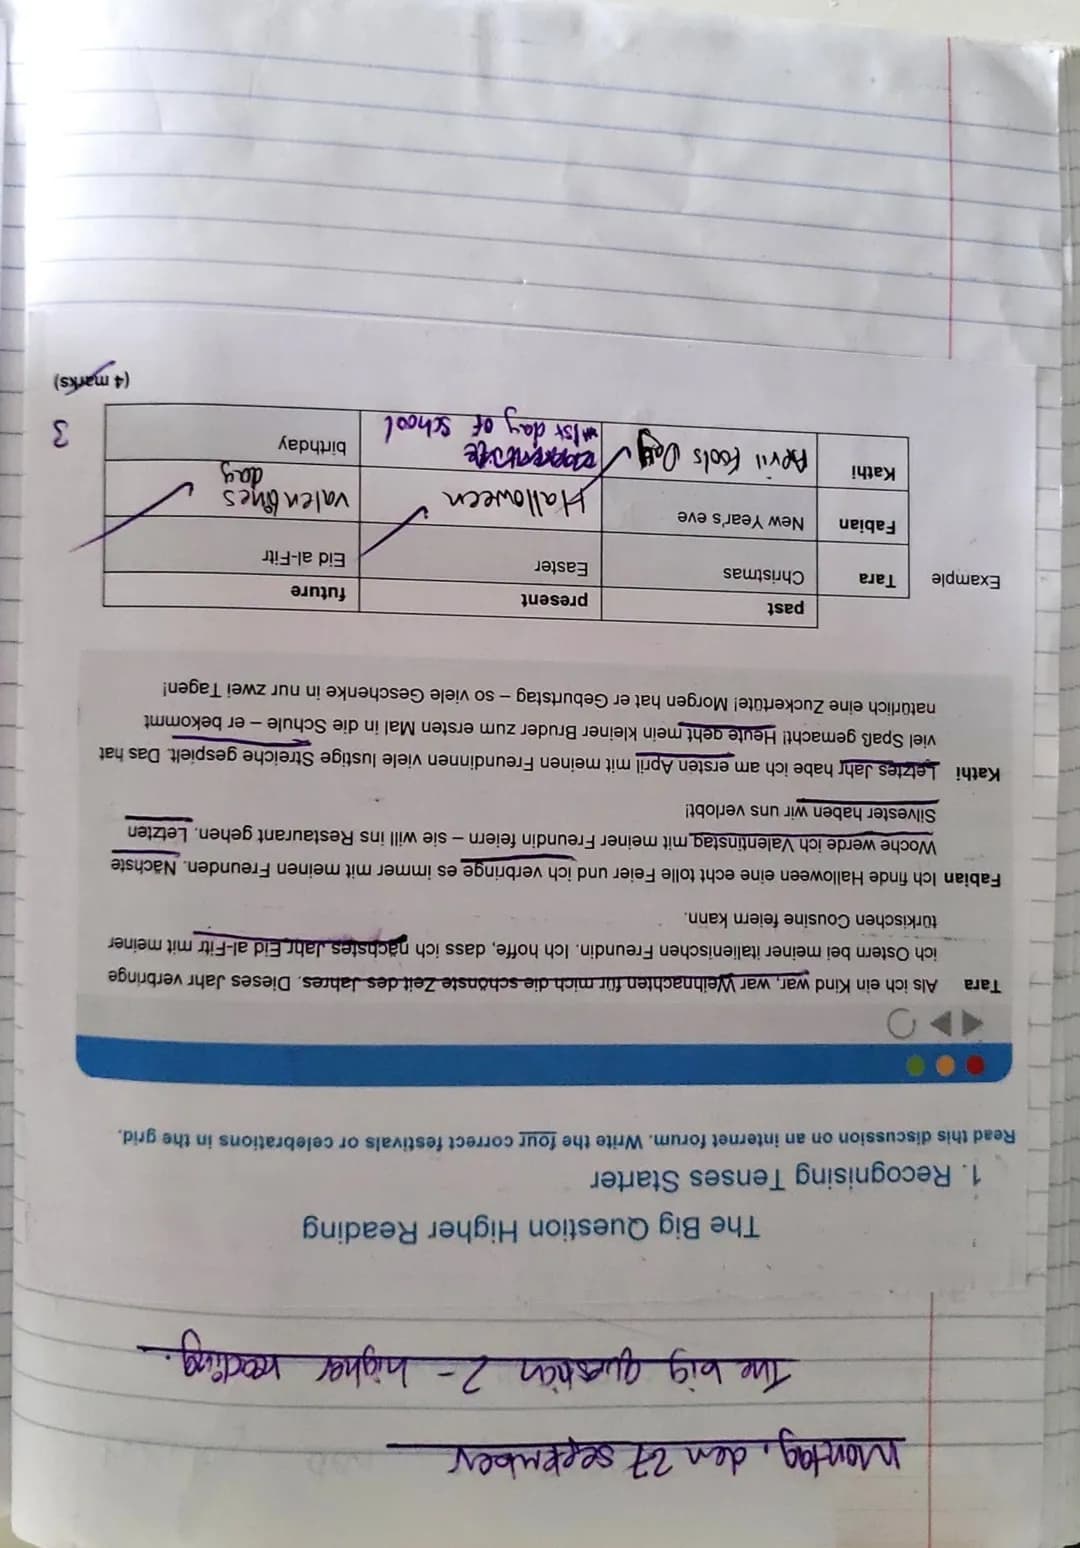 Montag, den 27 september
The big question 2 - higher reading.
The Big Question Higher Reading
1. Recognising Tenses Starter
Read this discussion on an internet forum. Write the four correct festivals or celebrations in the grid.
Tara Als ich ein Kind war, war Weihnachten für mich die schönste Zeit des Jahres. Dieses Jahr verbringe
ich Ostern bei meiner italienischen Freundin. Ich hoffe, dass ich nächstes Jahr Eid al-Fitr mit meiner
türkischen Cousine feiern kann.
Fabian Ich finde Halloween eine echt tolle Feier und ich verbringe es immer mit meinen Freunden. Nächste
Woche werde ich Valentinstag mit meiner Freundin feiern – sie will ins Restaurant gehen. Letzten
Silvester haben wir uns verlobt!
Kathi Letztes Jahr habe ich am ersten April mit meinen Freundinnen viele lustige Streiche gespielt. Das hat
viel Spaß gemacht! Heute geht mein kleiner Bruder zum ersten Mal in die Schule – er bekommt
natürlich eine Zuckertüte! Morgen hat er Geburtstag – so viele Geschenke in nur zwei Tagen!
past present future
Example Tara Christmas Easter Eid al-Fitr
Fabian New Year's eve Halloween valentines day
Kathi April Fools Day 1st day of school birthday
3
(4 marks)